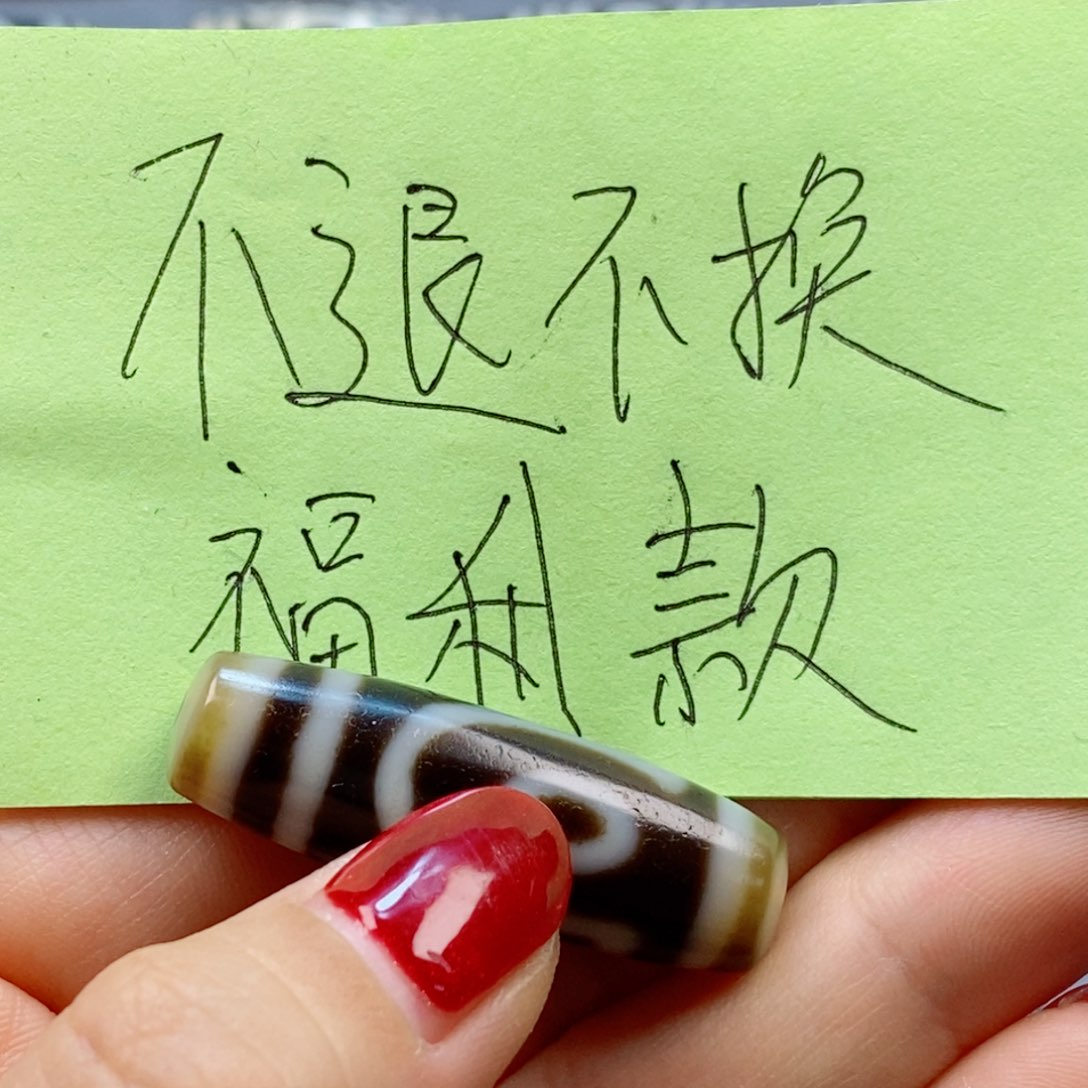 不退不换
福利款